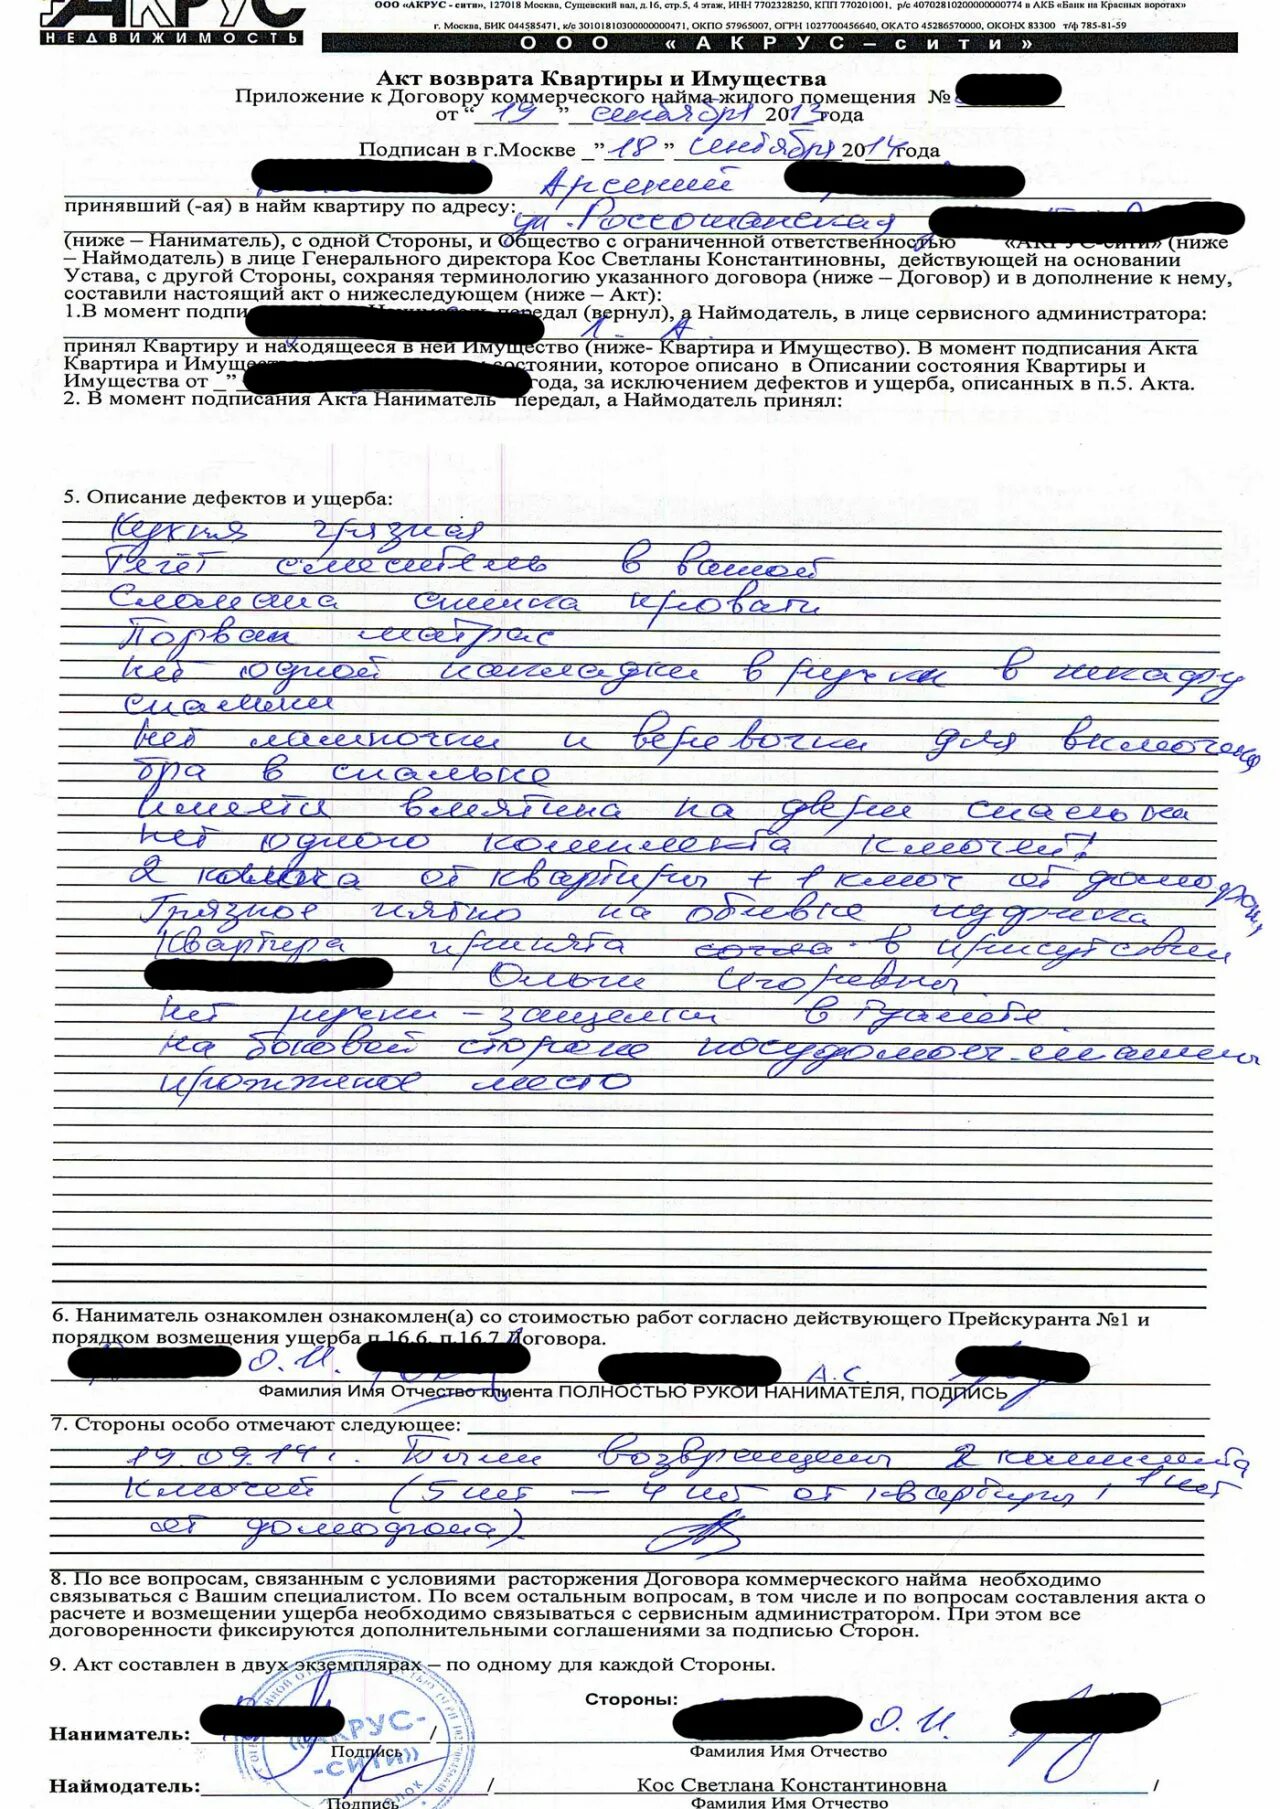 АКРУС
НЕДВИЖИМОСТЬ
ООО «АКРУС - сити», 127018 Москва, Сущевский вал, д.16, стр.5, 4 этаж, ИНН 7702328250, КПП 770201001, р/с 40702810200000000774 в АКБ «Банк на Красных воротах»
г. Москва, БИК 044585471, к/с 30101810300000000471, ОКПО 57965007, ОГРН 1027700456640, ОКАТО 45286570000, ОКОНХ 83300 т/ф 785-81-59
ООО «АКРУС-сити»
Акт возврата Квартиры и Имущества
Приложение к Договору коммерческого найма жилого помещения №
от “ 19 ” сентября 2013 года
Подписан в г.Москве ” 18 ” сентября 2014 года
Арсений
принявший (-ая) в найм квартиру по адресу: ул. Россошанская
(ниже – Наниматель), с одной Стороны, и Общество с ограниченной ответственностью «АКРУС-сити» (ниже
– Наймодатель) в лице Генерального директора Кос Светланы Константиновны, действующей на основании
Устава, с другой Стороны, сохраняя терминологию указанного договора (ниже – Договор) и в дополнение к нему,
составили настоящий акт о нижеследующем (ниже – Акт):
1.В момент подпи Наниматель передал (вернул), а Наймодатель, в лице сервисного администратора:
Л. А.
принял Квартиру и находящееся в ней Имущество (ниже- Квартира и Имущество). В момент подписания Акта
Квартира и Имущес состоянии, которое описано в Описании состояния Квартиры и
Имущества от _” года, за исключением дефектов и ущерба, описанных в п.5. Акта.
2. В момент подписания Акта Наниматель передал, а Наймодатель принял:
5. Описание дефектов и ущерба:
Кухня грязная
Течёт смеситель в ванной
Сломана спинка кровати
Порван матрас
Нет одной накладки в ручки в шкафу
спальни
Нет лампочки и веревочки для включения
бра в спальне
Имеется вмятина на двери спальни
Нет одного комплекта ключей!
2 ключа от квартиры + 1 ключ от домофона
Грязное пятно на обивке пуфика
Квартира принята в присутсвии
Ольги Игоревны.
Нет ручки-защелки в туалете.
На боковой стороне посудомоеч. машины
прожженое место
6. Наниматель ознакомлен ознакомлен(а) со стоимостью работ согласно действующего Прейскуранта №1 и
порядком возмещения ущерба п.16.6, п.16.7 Договора.
О.И. А.С.
Фамилия Имя Отчество клиента ПОЛНОСТЬЮ РУКОЙ НАНИМАТЕЛЯ, ПОДПИСЬ
7. Стороны особо отмечают следующее:
19.09.14г. Были возвращены 2 комплекта
ключей (5 шт – 4 шт от квартиры, 1 шт
от домофона).
8. По все вопросам, связанным с условиями расторжения Договора коммерческого найма необходимо
связываться с Вашим специалистом. По всем остальным вопросам, в том числе и по вопросам составления акта о
расчете и возмещении ущерба необходимо связываться с сервисным администратором. При этом все
договоренности фиксируются дополнительными соглашениями за подписью Сторон.
9. Акт составлен в двух экземплярах – по одному для каждой Стороны.
Стороны:
Наниматель: / О.И.
Подпись Фамилия Имя Отчество
«АКРУС-
-СИТИ»
Наймодатель: / Кос Светлана Константиновна /
Подпись Фамилия Имя Отчество